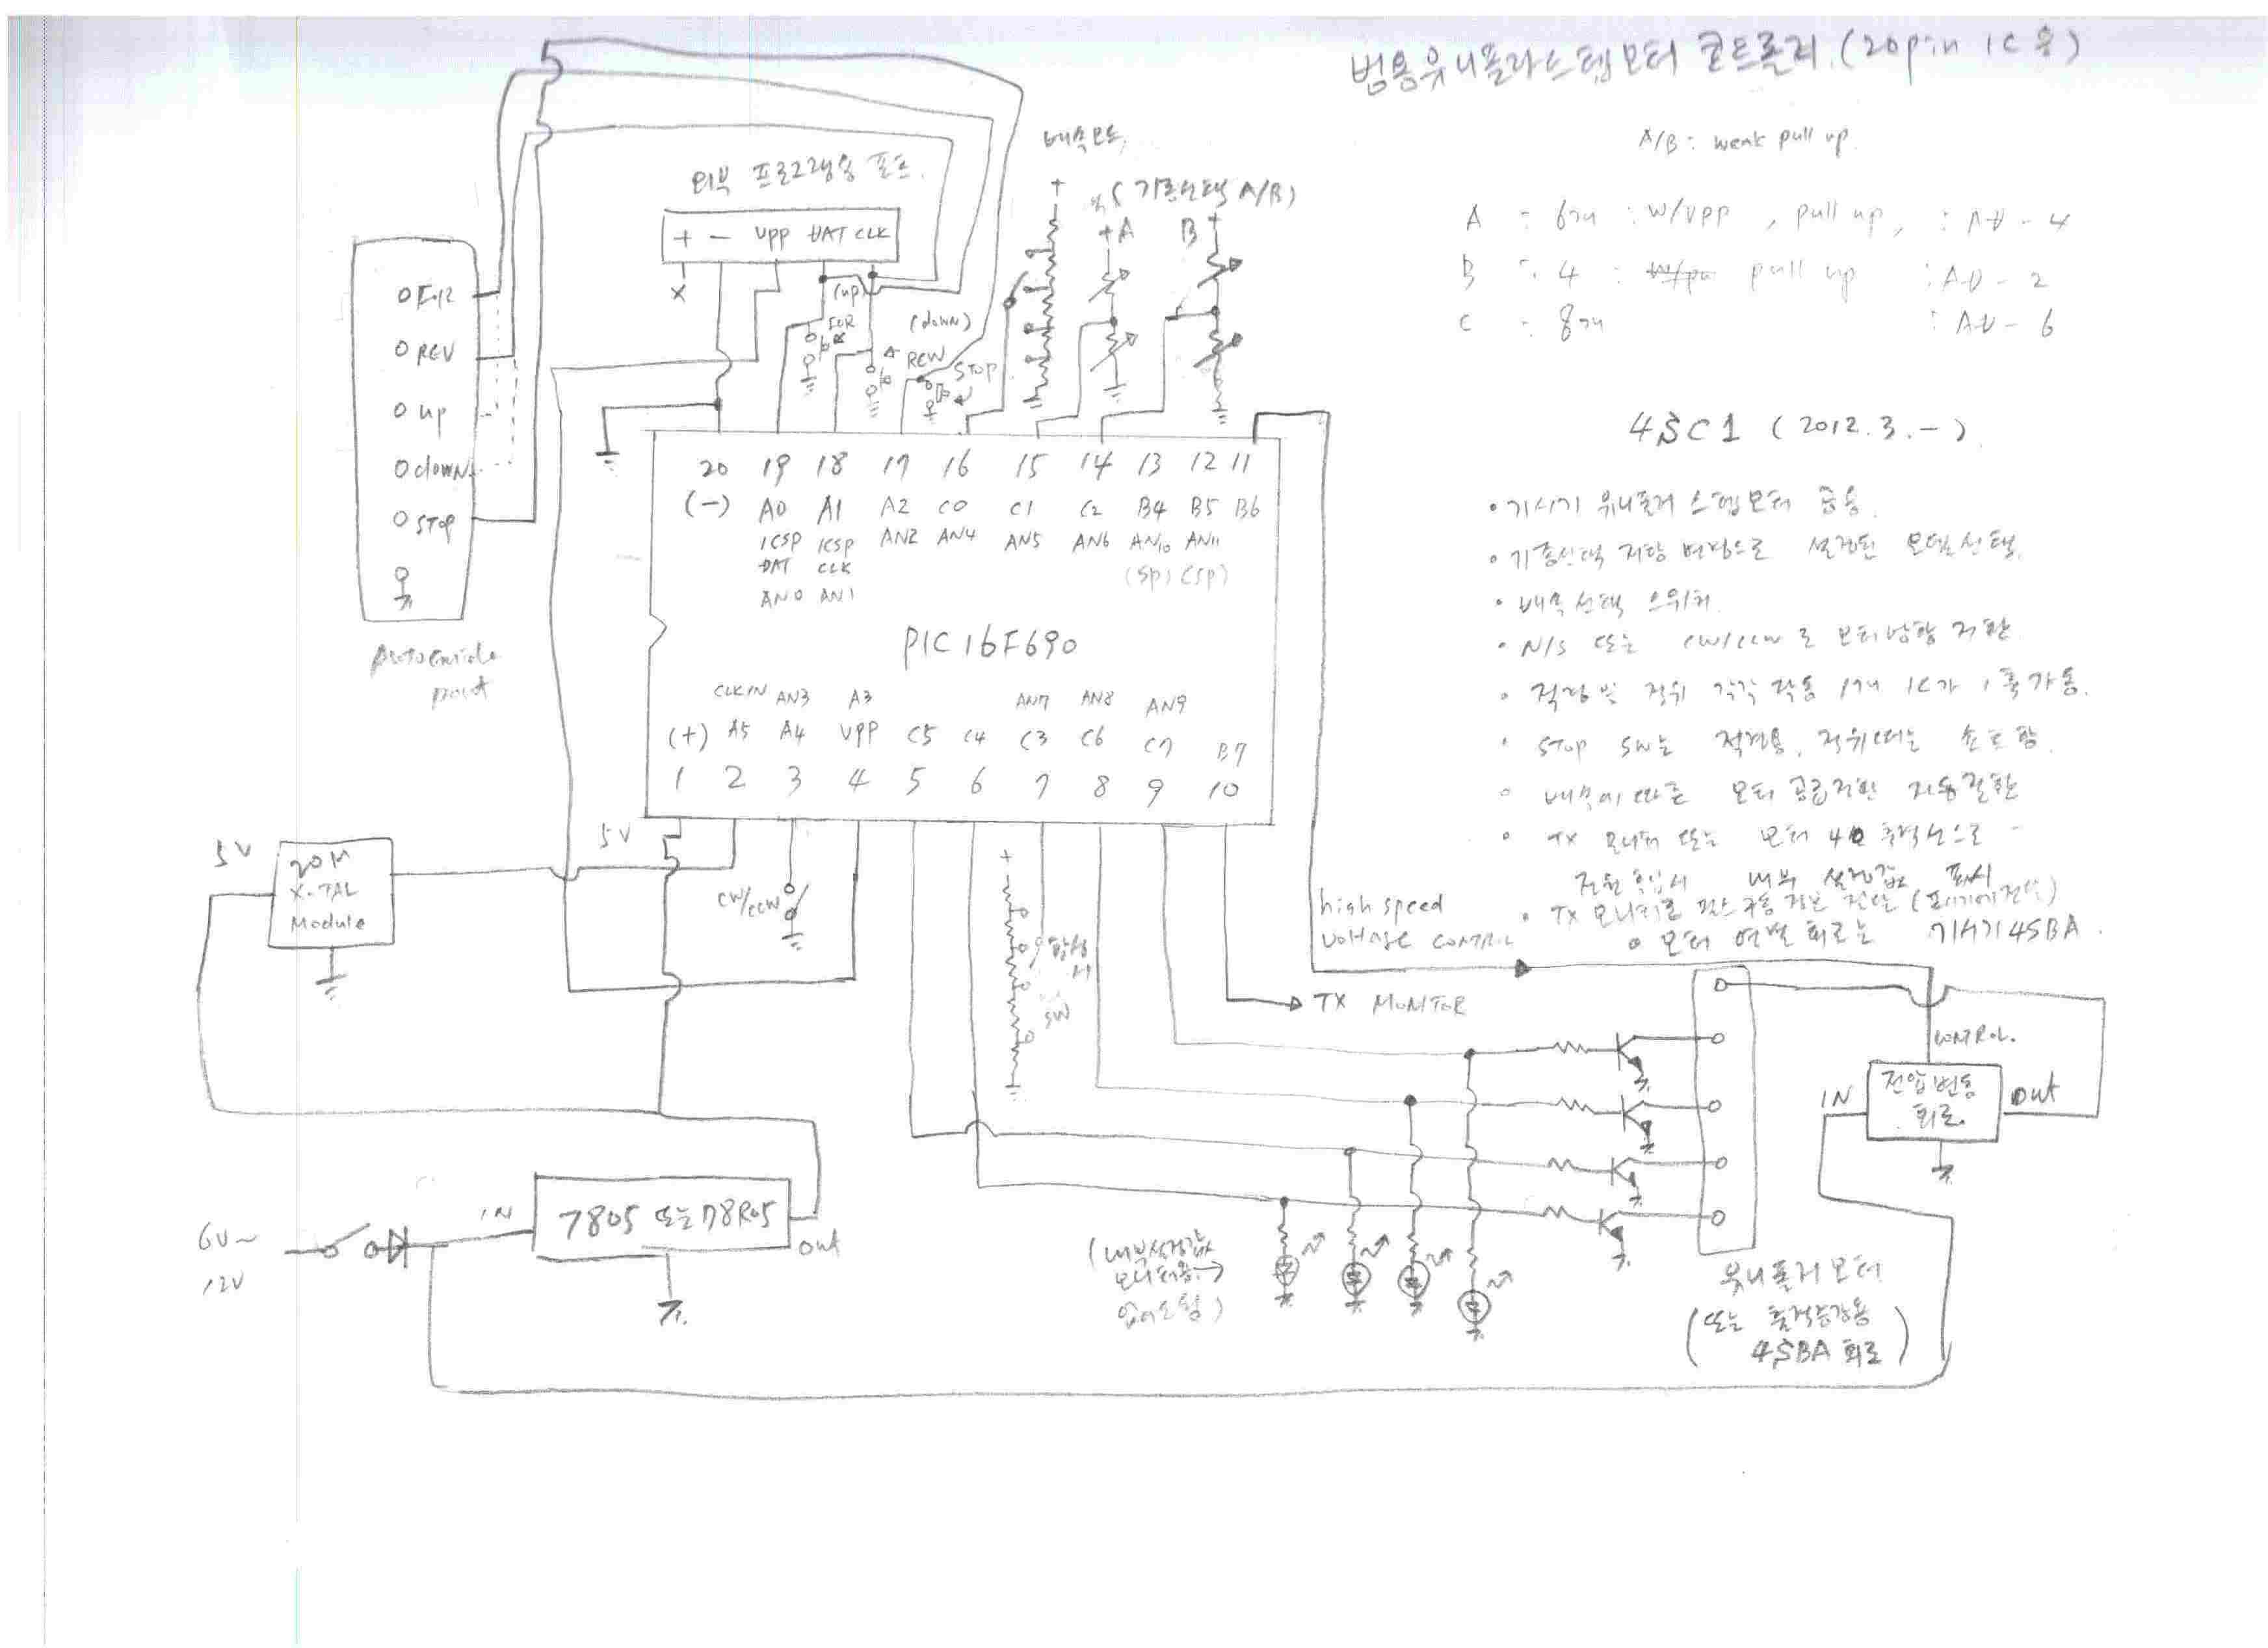 범용유니폴라스텝모터 콘트롤러.(20pin IC용)
A/B: weak pull up.
A : 6개 : w/vpp , pull up, : AD - 4
B : 4 : pull up : AD - 2
C : 8개 : AD - 6
4SC1 (2012.3.-)
• 기서기 유니폴러 스텝모터 공용.
• 기종선택 저항 변경으로 설정된 모델선택.
• 배속선택 스위치.
• N/S 또는 cw/ccw로 모터방향 전환
• 적경 및 적위 각각 작동 1개 IC가 1축 가동.
• STOP SW는 적경용. 적위때는 쇼트함.
• 배속에 따른 모터 공급전압 자동절환
• TX 모니터 또는 모터 4 출력선으로
전원투입시 내부 설정값 표시
• TX 모니터로 펄스 구동 정보 전달
• 모터 연결 회로는 기서기 4SBA.
배속모드,
(기종선택 A/B)
+A
B
+
외부 프로그램용 포트.
+ - VPP DAT CLK
x
(up)
FOR
(down)
REW
STOP
O FOR
O REV
O up
O down
O STOP
Autoguide
port
20 19 18 17 16 15 14 13 12 11
(-) A0 A1 A2 C0 C1 C2 B4 B5 B6
ICSP ICSP AN2 AN4 AN5 AN6 AN10 AN11
DAT CLK (SP) (SP)
AN0 AN1
PIC16F690
CLKIN AN3 A3 AN7 AN8 AN9
(+) A5 A4 VPP C5 C4 C3 C6 C7 B7
1 2 3 4 5 6 7 8 9 10
5V
5V
20M
X-TAL
Module
CW/CCW
+
SW
high speed
voltage control
TX MONITOR
CONTROL.
IN
전압변동
회로.
out
6V~
12V
IN
7805 또는 78R05
out
(내부설정값
모니터용→
없어도됨)
유니폴러모터
(또는 출력증강용
4SBA 회로)